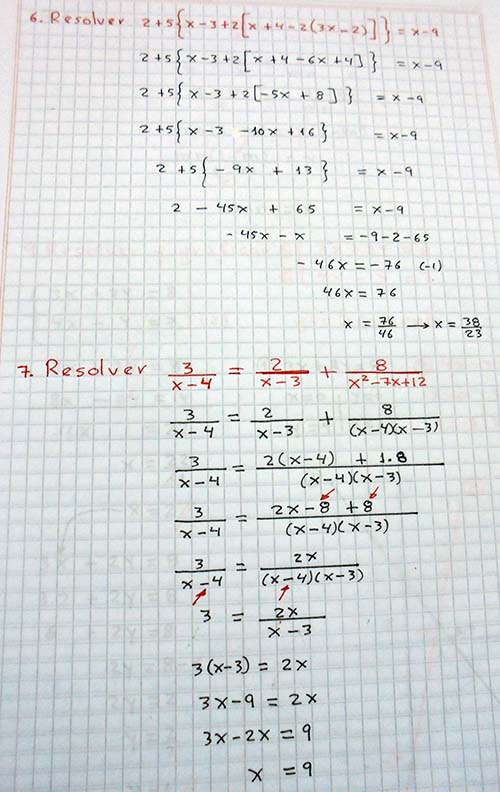 6. Resolver 2+5{x-3+2[x+4-2(3x-2)]}=x-9
2+5{x-3+2[x+4-6x+4]} = x-9
2+5{x-3+2[-5x+8]} = x-9
2+5{x-3-10x+16} = x-9
2+5{-9x+13} = x-9
2-45x+65 = x-9
-45x-x = -9-2-65
-46x=-76 (-1)
46x=76
x = 76/46 → x = 38/23
7. Resolver 3/(x-4) = 2/(x-3) + 8/(x²-7x+12)
3/(x-4) = 2/(x-3) + 8/((x-4)(x-3))
3/(x-4) = (2(x-4) + 1.8)/((x-4)(x-3))
3/(x-4) = (2x-8+8)/((x-4)(x-3))
3/(x-4) = 2x/((x-4)(x-3))
3 = 2x/(x-3)
3(x-3) = 2x
3x-9 = 2x
3x-2x = 9
x = 9